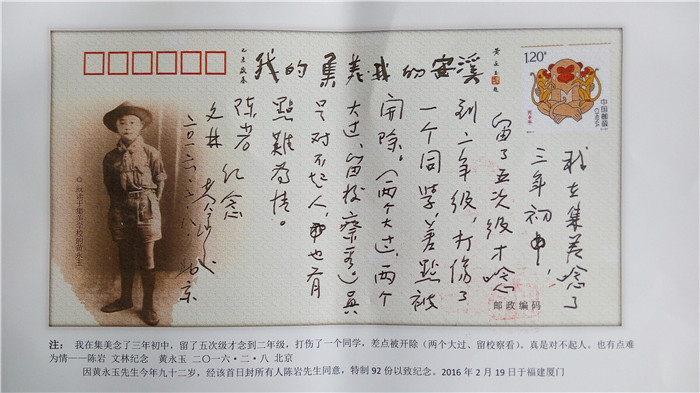 我的集美我的安溪
黄永玉题
1.20元
中国邮政
CHINA
丙申年
我在集美唸了
三年初中，
留了五次级才唸
到二年级，打伤了
一个同学，差點被
開除。（两个大过、两个
大过、留校察看）真
是对不起人，也有
點難為情。
陈岩
文林 纪念
黄永玉
二〇一六·二·八 北京
就读于集美学校的黄永玉
邮政编码
注： 我在集美念了三年初中，留了五次级才念到二年级，打伤了一个同学，差点被开除（两个大过、留校察看）。真是对不起人。也有点难
为情——陈岩 文林纪念 黄永玉 二〇一六·二·八 北京
因黄永玉先生今年九十二岁，经该首日封所有人陈岩先生同意，特制 92 份以致纪念。2016 年 2 月 19 日于福建厦门